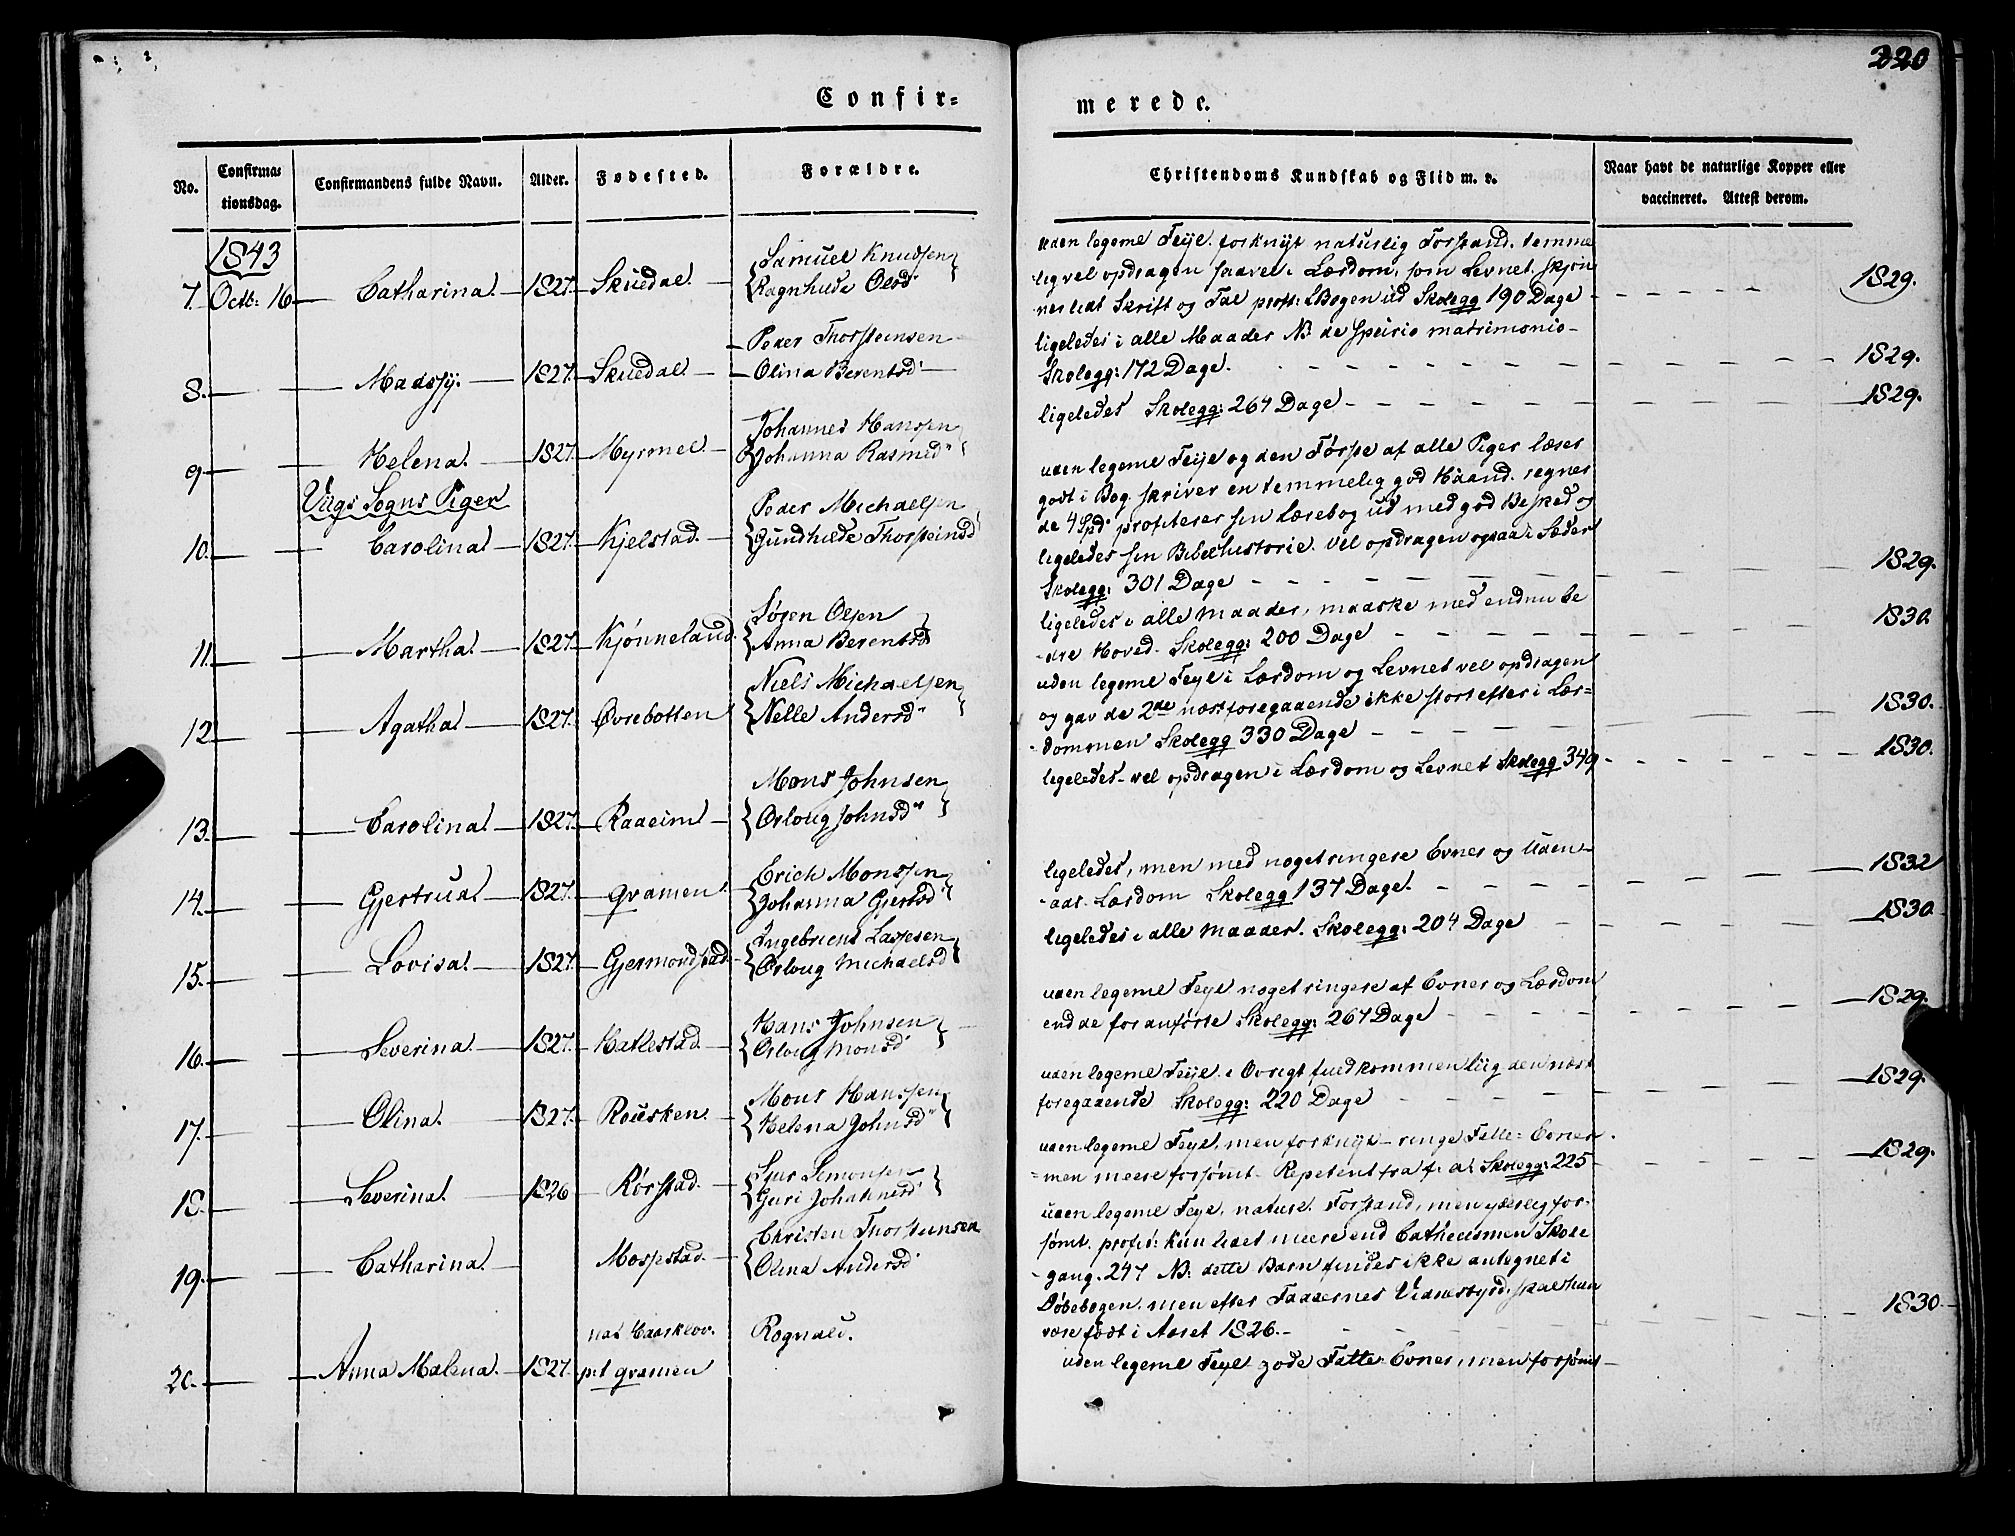 220
Confir=
merede.
No.
Confirma=
tionsdag.
Confirmandens fulde Navn.
Alder.
Fødested.
Forældre.
Christendoms Kundskab og Flid m. v.
Naar havt de naturlige Kopper eller
vaccineret. Attest derom.
1843
7. Octb: 16 Catharina. 1827. Skuedal.
Samuel Knudsen
Ragnhilde Olsd
uden legeml Feyl. forknyt naturlig Forstand, temme
ligvel opdragen saavel i Lærdom, som Levnet. skjøn
ner lidt Skrift og Tal profit: LBogen ud Skolegg 190 Dage 1829.
8. Madssy. 1827. Skuedal.
Peder Thorsteinsen
Olina Berentsd
ligeledes i alle Maader NB: de speirio matrimonio
Skolegg: 172 Dage. 1829.
9. Helena. 1827. Myrmel.
Johannes Hanssen
Johanna Rasmusd
ligeledes Skolegg: 264 Dage 1829.
Vags Sogns Piger
10. Carolina. 1827. Kjelstad.
Peder Michaelsen
Gundhilde Thorsteinsd
uden legeml Feyl og den Første af alle Piger læser
godt i Bog. skriver en temmelig god Haand. regner
de 4 Spd. profiterer sin Lærebog ud med god Besked og
ligeledes sin Bibelhistorie. vel opdragen ogsaa i Sæder
Skolegg: 301 Dage 1829.
11. Martha. 1827. Kjønneland.
Søren Olsen
Anna Berentsd
ligeledes i alle Maader, maaske med endnu be
dre Hoved. Skolegg: 200 Dage 1830.
12. Agatha. 1827. Øvrebotten
Niels Michaelsen
Nelle Andersd
uden legeml Feyl i Lærdom og Levnet vel opdragen
og gav de 2de næstforegaaende ikke stort efter i Lær=
dommen Skolegg 330 Dage 1830.
13. Carolina. 1827. Raaeim
Mons Johnsen
Orloug Johnsd
ligeledes vel opdragen i Lærdom og Levnet Skolegg 349 1830.
14. Gjertrud 1827. Gramen
Erich Monssen
Johanna Gjertsd
ligeledes, men med noget ringere Evner og Uden-
ads Lærdom Skolegg 137 Dage. 1832
15. Lovisa. 1827. Gjermondstad
Ingebricht Lassesen
Orloug Michaelsd
ligeledes i alle Maader. Skolegg: 204 Dage 1830.
16. Severina. 1827. Hatlestad
Hans Johnsen
Orloug Monsd
uden legeml Feyl noget ringere af Evner og Lærdom
end de foranførte Skolegg: 267 Dage 1829.
17. Olina. 1827. Rousken.
Mons Hanssen
Helena Johnsd
uden legeml Feyl. i Øvrigt fuldkommen liig den næst
foregaaende Skolegg: 220 Dage 1829.
18. Severina. 1826 Rørstad.
Sjur Simonsen
Guri Johannesd
uden legeml Feyl, men forknyt ringe Fatte=Evner.
men meere forsømt. Repetent fra f: a: Skolegg: 225 1829.
19. Catharina. Mosstad.
Christen Thorsteinsen
Olina Andersd
uden legeml Feyl. naturl. Forstand, men yderlig for-
sømt. profit: kun lidet meere end Cathecismen Skole
gang. 247 NB: dette Barn findes ikke antegnet i
Døbebogen. men efter Faddernes Vidnesbyrd. skal hun
være født i Aaret 1826. 1830
20. Anna Malena. 1827.
p:t Gramen
Rognald.
uden legeml Feyl gode Fatte=Evner, men forsømt